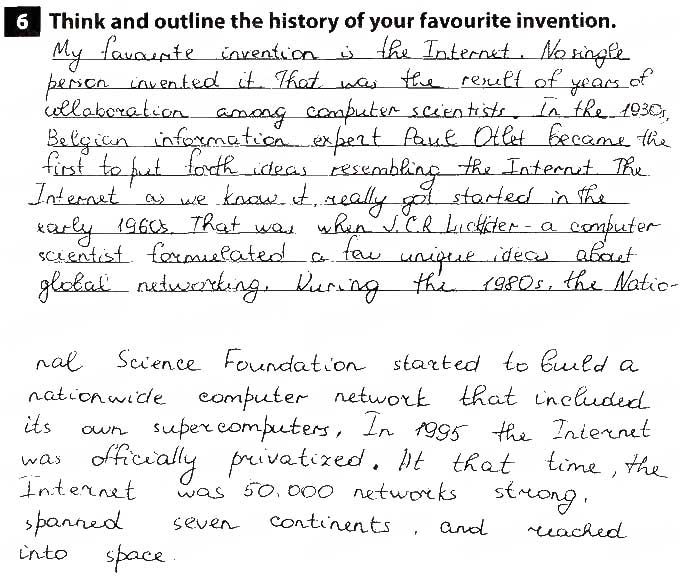 6 Think and outline the history of your favourite invention.
My favourite invention is the Internet. No single
person invented it. That was the result of years of
collaboration among computer scientists. In the 1930s,
Belgian information expert Paul Otlet became the
first to put forth ideas resembling the Internet. The
Internet as we know it, really got started in the
early 1960s. That was when J.C.R Licklider - a computer
scientist formulated a few unique ideas about
global networking. During the 1980s, the Natio-
nal Science Foundation started to build a
nationwide computer network that included
its own supercomputers. In 1995 the Internet
was officially privatized. At that time, the
Internet was 50.000 networks strong,
spanned seven continents, and reached
into space.